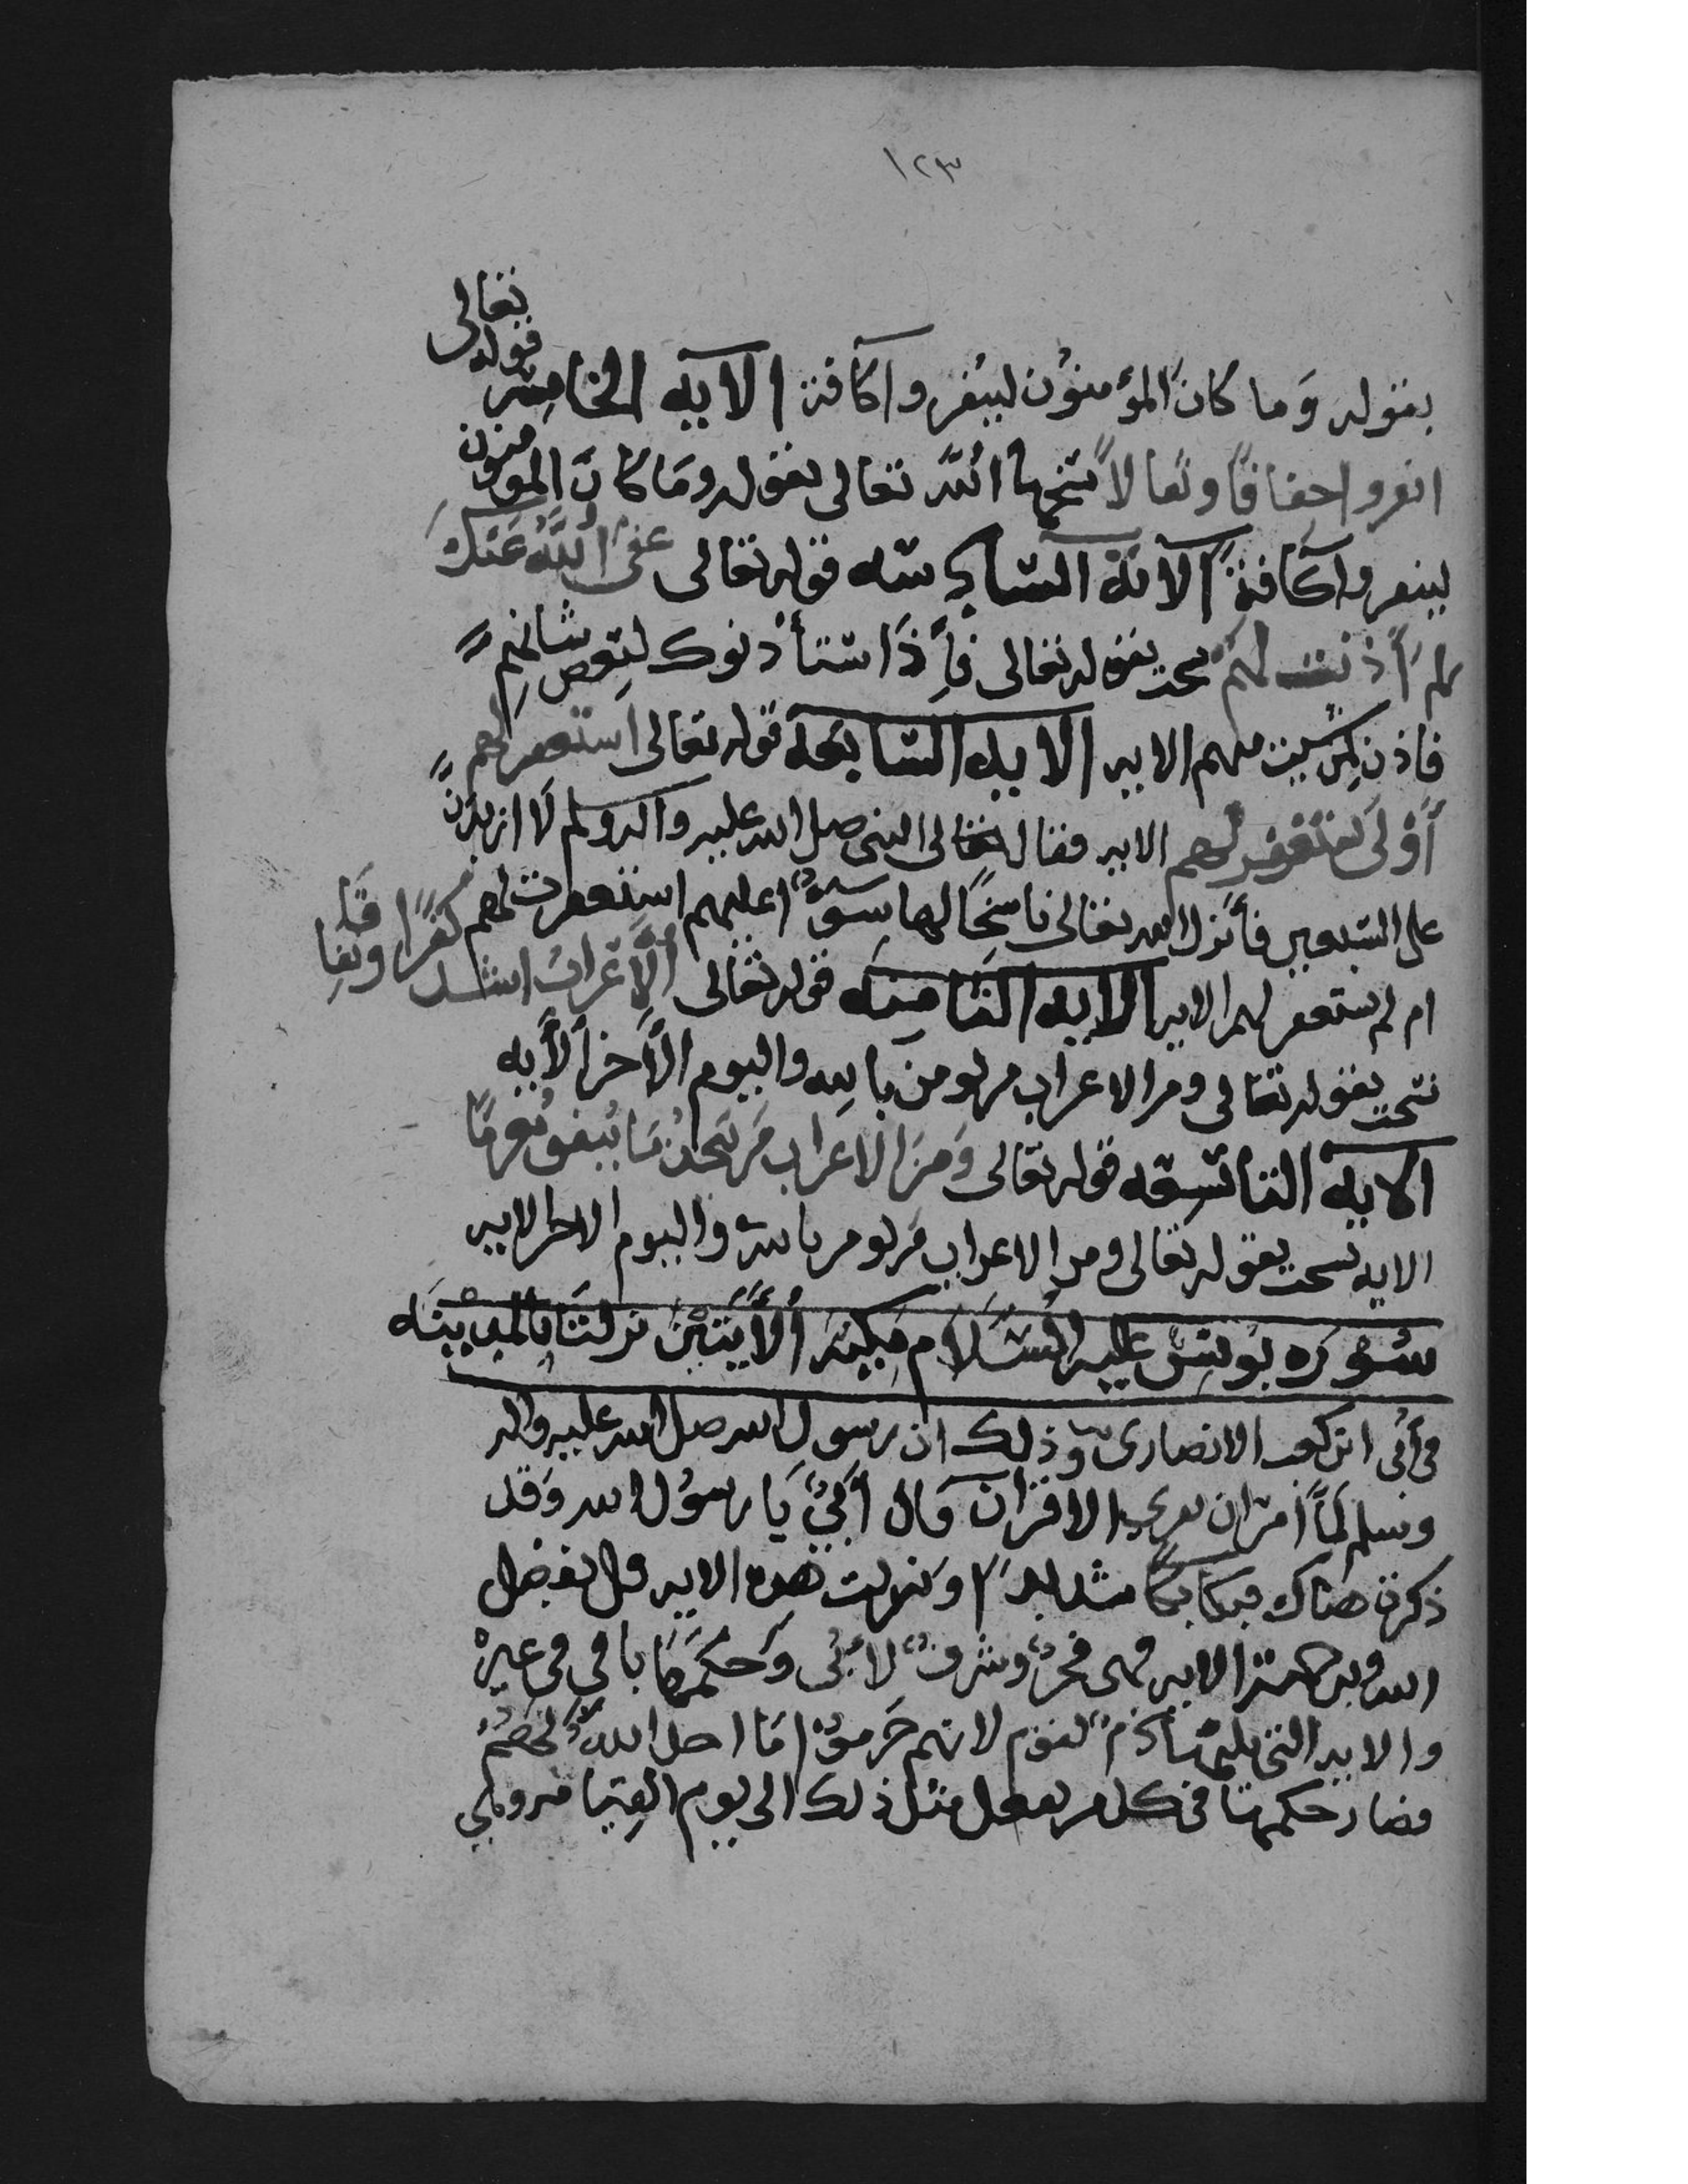 ١٢٣
بقوله وَما كانَ المؤمنوُن لينفروا كافة الآيه الخامسه قوله تعالى
انفروا خفافًا وثقالاً نسخها الله تعالى بقوله ومَا كانَ المومنون
لينفروا كافةً الآية السادسه قوله تعالى عفى اللَّهُ عَنكَ
لِمَ أذنت لهم نسخت بقوله تعالى فإذا استأذنوك لبعض شانهم
فاذن لمن شيت منهم الايه الايه السابعة قوله تعالى استغفر لهم
أوْ لا تستغفر لهم الايه فقال النبى صلى الله عليه واله وسلم لَا ازيدنَّ
على السبعين فأنزل الله تعالى ناسخًا لها سوآءٌ عليهم استغفرت لهم
ام لم تستغفر لهم الايه الايه الثامنه قوله تعالى الأعرابُ اشد كفرًا ونفاقا
نسخت بقوله تعالى ومن الاعراب من يومن بالله واليوم الآخر الآيه
الايه التاسعه قوله تعالى وَمنَ الاعَراب مَن يتخذُ مَا ينفق مغرمًا
الايه نسخت بقوله تعالى ومن الاعراب مَن يومن بالله واليوم الاخر الايه
سُوره يونس عليه السَّلَام مكيه الأيَتَيْن نزلتَا بالمدينَه
فى أُبى ابن كعب الانصارى وذلك ان رسول الله صلى الله عليه واله
وسلم لمَّا أمر ان يقرى القران قال أُبىُّ يَا رسوُل الله وَقد
ذكرت هناك فبكا بكآً شديدًا ونزلت هذه الايه قل بفضل
الله وبرحمته الايه فهى فخرٌ وشرفٌ لاُبى وَحكمهَا باقى فى غيره
والايه التى يليها ذمٌ لقوم لانهم حَرمُوا مَا احل اللهُ لهُم
فصار حكمها فى كل من يفعل مثل ذلك الى يوم القِيامه